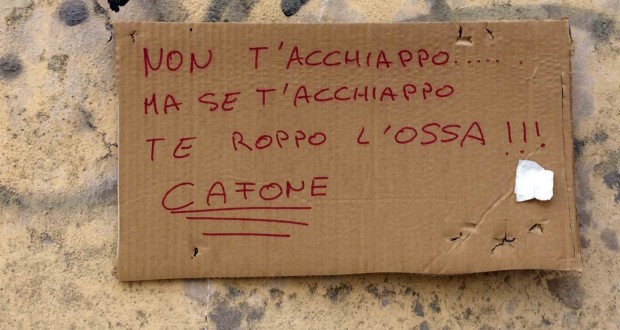 NON T'ACCHIAPPO......
MA SE T'ACCHIAPPO
TE ROPPO L'OSSA!!!
CAFONE